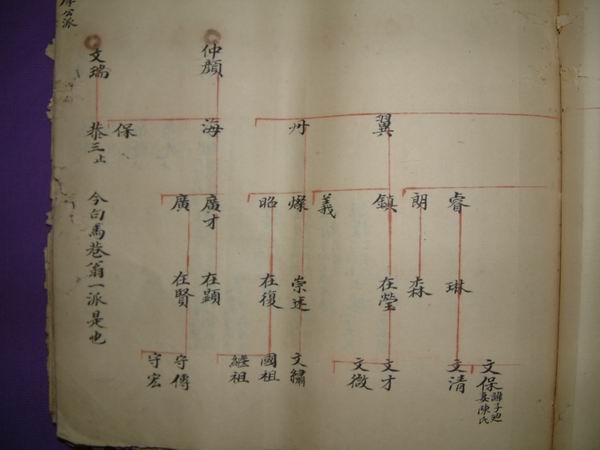 仲顏
文瑞
翼
州
海
保
恭三止
睿
朗
鎮
義
燦
昭
廣才
廣
今向馬巷翁一派是也
琳
森
在瑩
崇述
在復
在顯
在賢
文保
妻陳氏
文清
文才
文徵
文繡
國祖
繼祖
守傳
守宏